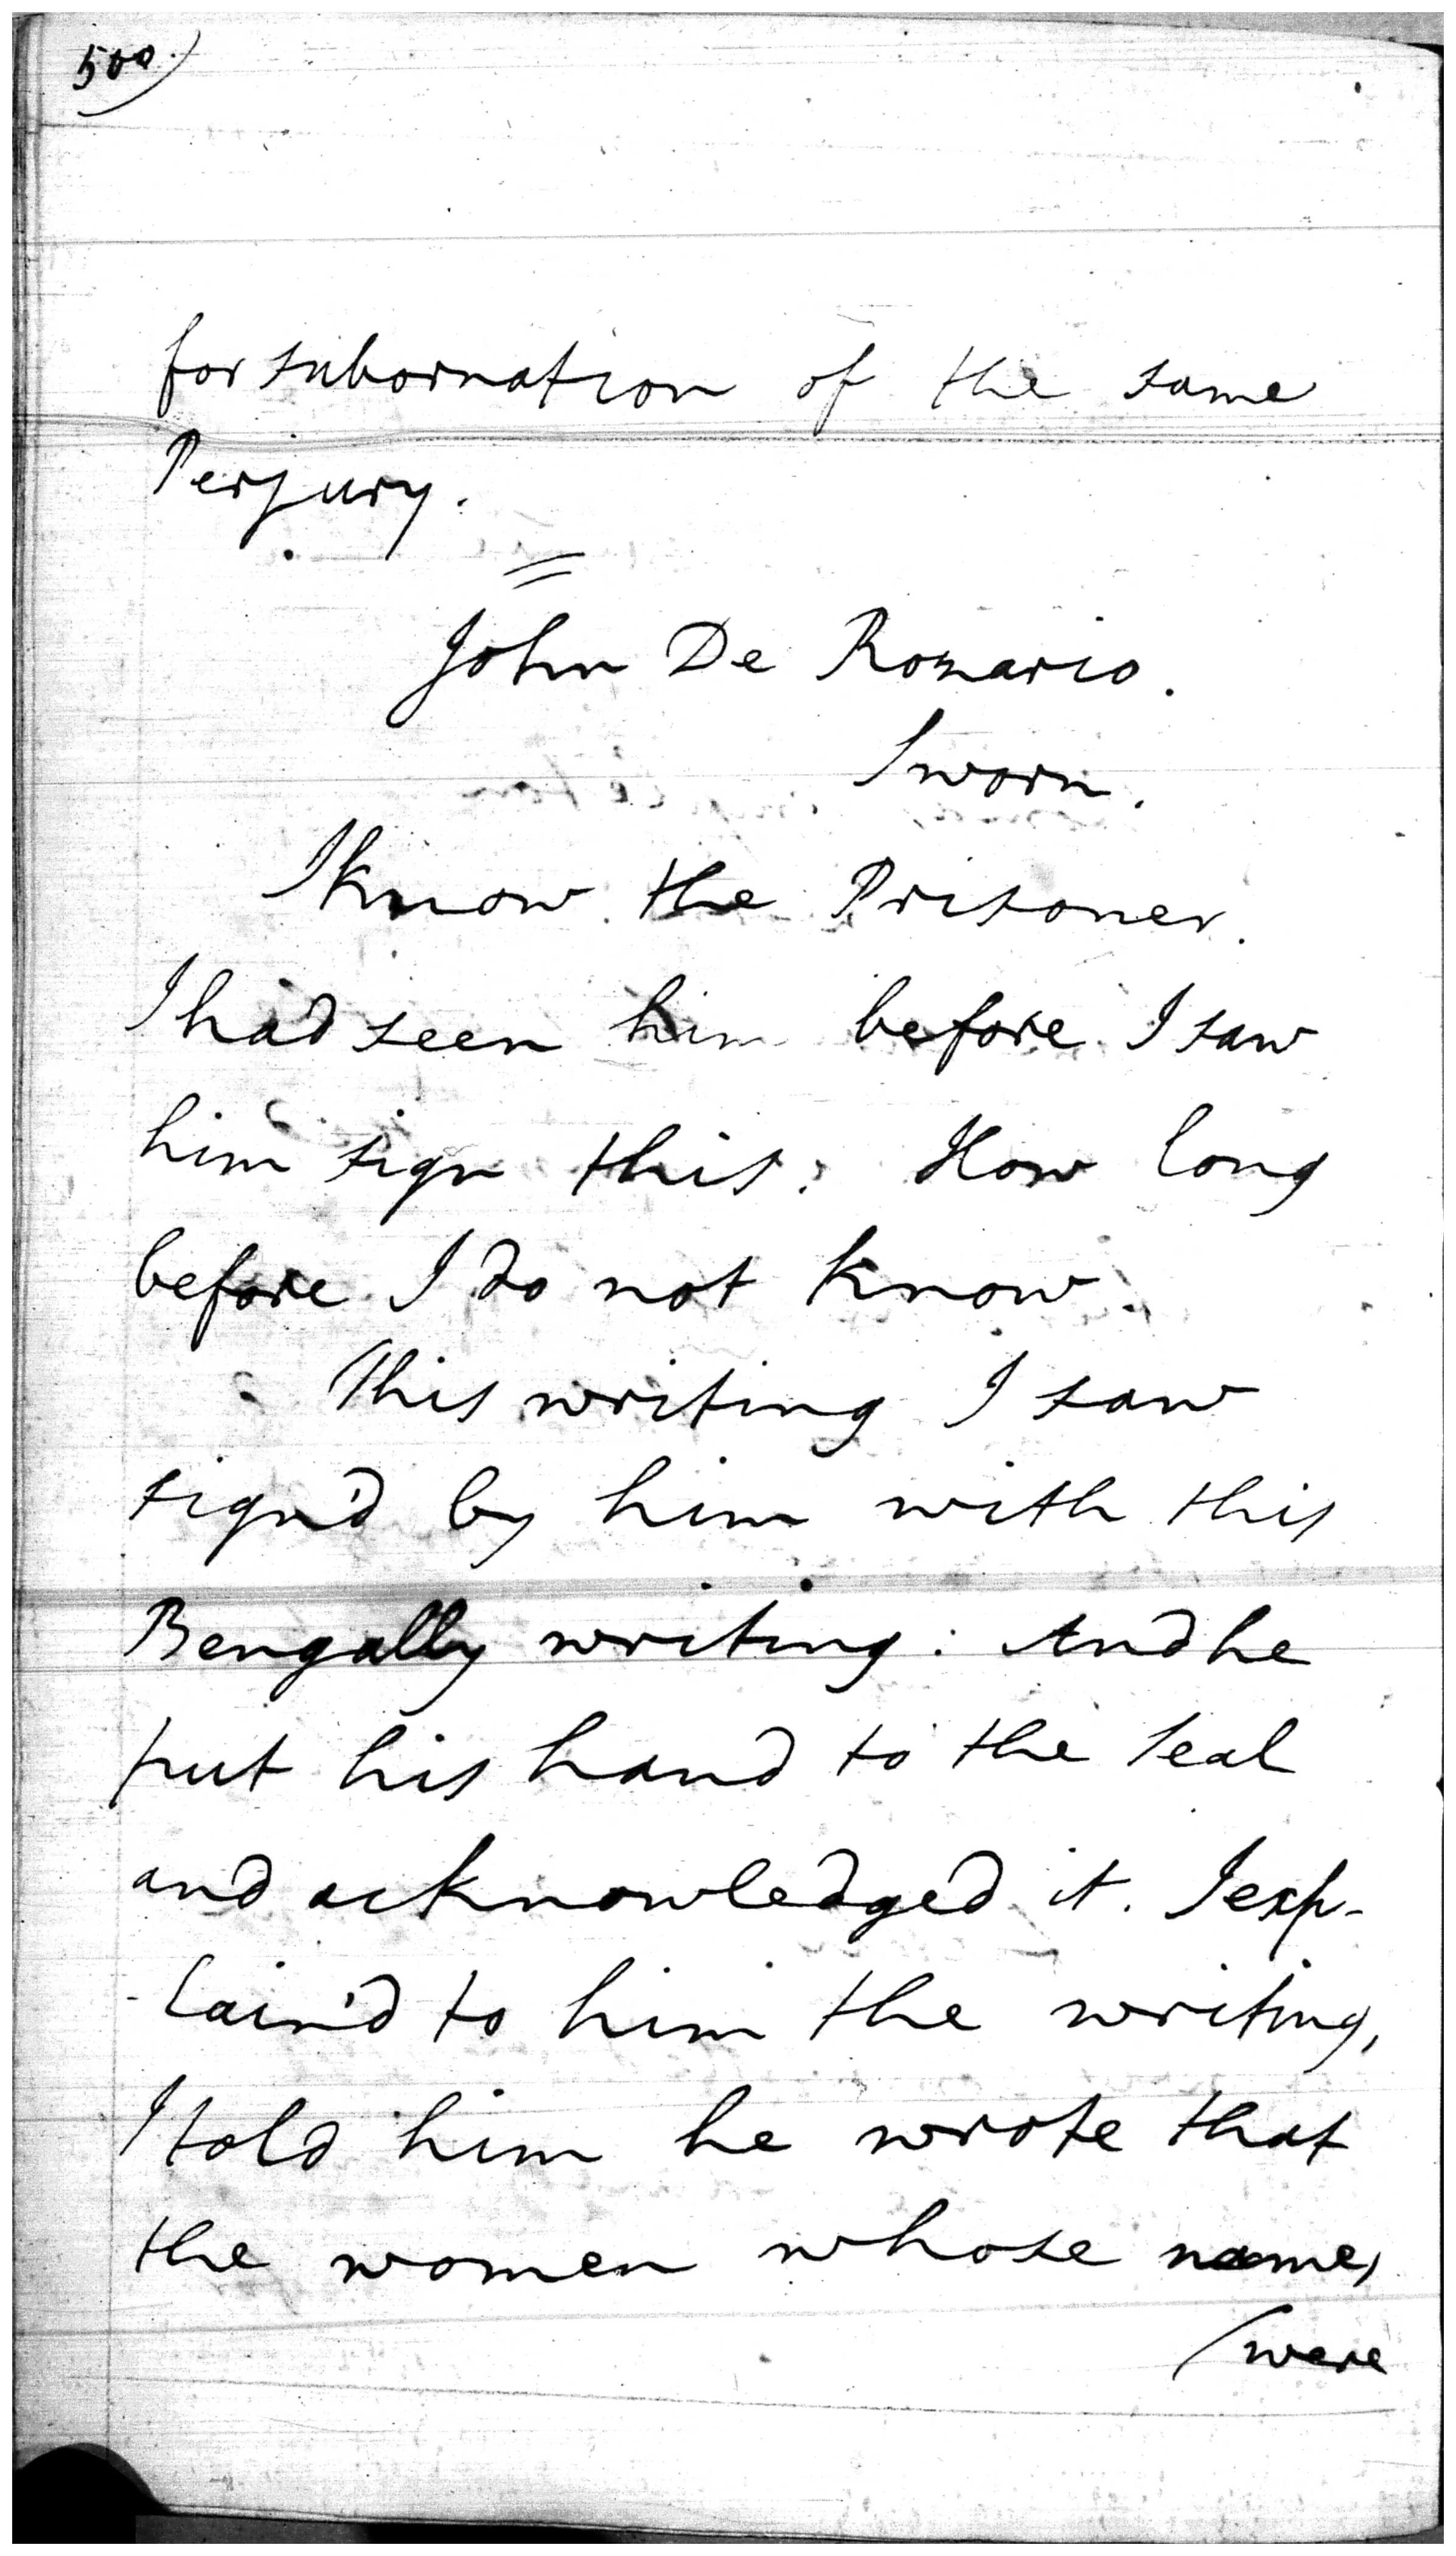 500)
for subornation of the same
Perjury.
=
John De Rozario.
Sworn.
I know the Prisoner.
I had seen him before I saw
him sign this: How long
before I do not know.
This writing I saw
sign'd by him with this
Bengally writing: And he
put his hand to the Seal
and acknowledged it. I exp-
-lain'd to him the writing,
I told him he wrote that
the women whose names
(were